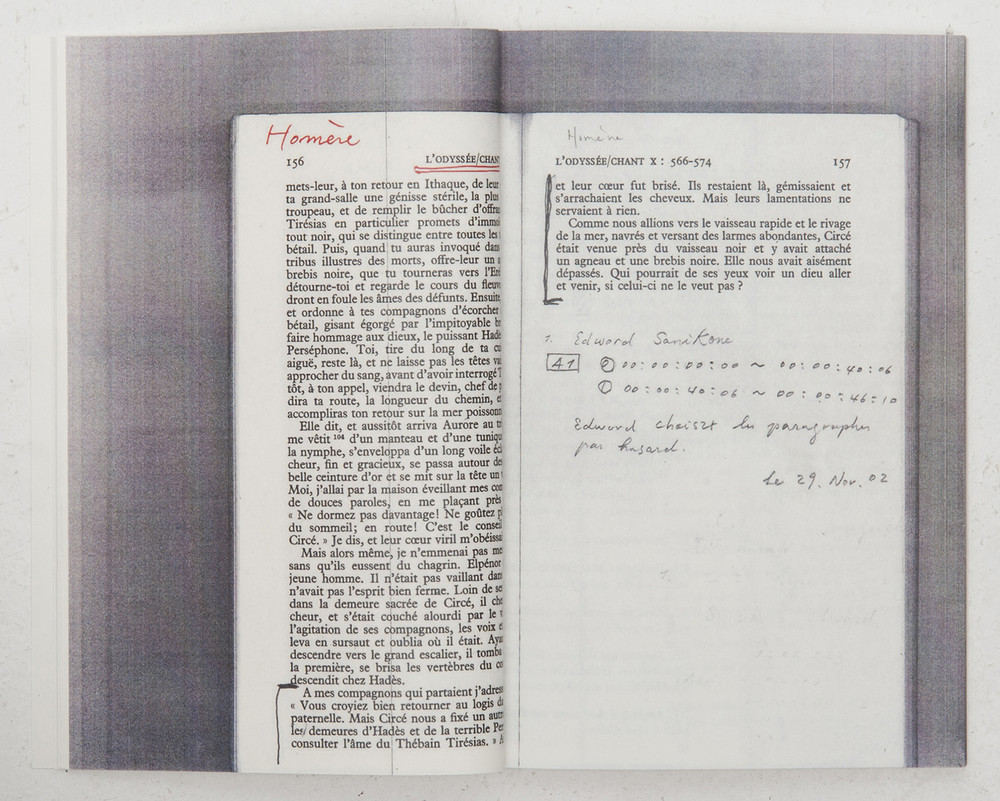 Homère
156
L'ODYSSÉE/CHAN
mets-leur, à ton retour en Ithaque, de leur
ta grand-salle une génisse stérile, la plus
troupeau, et de remplir le bûcher d'offra
Tirésias en particulier promets d'immo
tout noir, qui se distingue entre toutes les
bétail. Puis, quand tu auras invoqué dans
tribus illustres des morts, offre-leur un a
brebis noire, que tu tourneras vers l'Ere
détourne-toi et regarde le cours du fleuve
dront en foule les âmes des défunts. Ensuite
et ordonne à tes compagnons d'écorcher
bétail, gisant égorgé par l'impitoyable br
faire hommage aux dieux, le puissant Hadè
Perséphone. Toi, tire du long de ta cu
aiguë, reste là, et ne laisse pas les têtes va
approcher du sang, avant d'avoir interrogé T
tôt, à ton appel, viendra le devin, chef de p
dira ta route, la longueur du chemin, e
accompliras ton retour sur la mer poissonn
Elle dit, et aussitôt arriva Aurore au tr
me vêtit 104 d'un manteau et d'une tuniqu
la nymphe, s'enveloppa d'un long voile écl
cheur, fin et gracieux, se passa autour de
belle ceinture d'or et se mit sur la tête un v
Moi, j'allai par la maison éveillant mes com
de douces paroles, en me plaçant près
« Ne dormez pas davantage! Ne goûtez p
du sommeil; en route! C'est le conseil
Circé. » Je dis, et leur cœur viril m'obéissa
Mais alors même, je n'emmenai pas me
sans qu'ils eussent du chagrin. Elpénor
jeune homme. Il n'était pas vaillant dans
n'avait pas l'esprit bien ferme. Loin de se
dans la demeure sacrée de Circé, il che
cheur, et s'était couché alourdi par le v
l'agitation de ses compagnons, les voix e
leva en sursaut et oublia où il était. Aya
descendre vers le grand escalier, il tomba
la première, se brisa les vertèbres du co
descendit chez Hadès.
A mes compagnons qui partaient j'adress
« Vous croyiez bien retourner au logis de
paternelle. Mais Circé nous a fixé un autr
les demeures d'Hadès et de la terrible Per
consulter l'âme du Thébain Tirésias. » A
Homère
L'ODYSSÉE/CHANT X : 566-574
157
et leur cœur fut brisé. Ils restaient là, gémissaient et
s'arrachaient les cheveux. Mais leurs lamentations ne
servaient à rien.
Comme nous allions vers le vaisseau rapide et le rivage
de la mer, navrés et versant des larmes abondantes, Circé
était venue près du vaisseau noir et y avait attaché
un agneau et une brebis noire. Elle nous avait aisément
dépassés. Qui pourrait de ses yeux voir un dieu aller
et venir, si celui-ci ne le veut pas ?
1. Edward Sanikone
A1 ② 00:00:00:00 ~ 00:00:40:06
① 00:00:40:06 ~ 00:00:46:10
Edward choisit les paragraphes
par hasard.
Le 29. Nov. 02